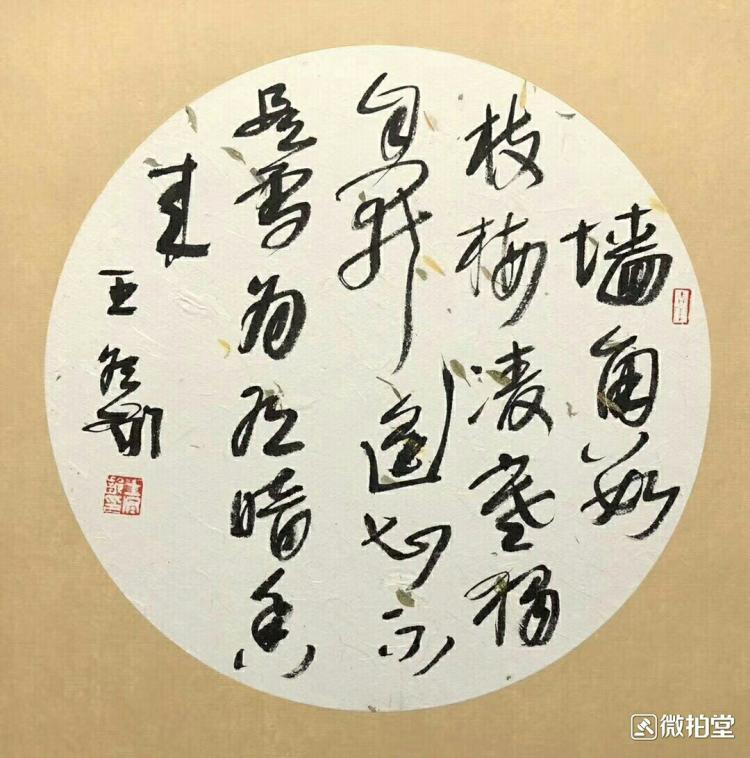 墙角数
枝梅凌寒独
自開遥知不
是雪为有暗香
来
王
微拍堂